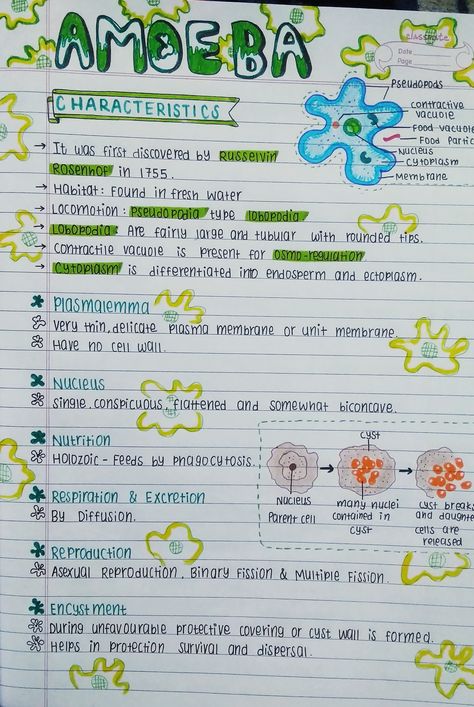 AMOEBA
classmate
Date
Page
CHARACTERISTICS
Pseudopods
contractive
vacuole
Food vacuole
Food Partic
Nucleus
Cytoplasm
Membrane
→ It was first discovered by Russelvin
Rosenhof in 1755.
→ Habitat: Found in fresh water
→ Locomotion: Pseudopodia type lobopodia
→ Lobopodia: Are fairly large and tubular with rounded tips.
→ Contractile vacuole is present for osmo-regulation
→ Cytoplasm is differentiated into endosperm and ectoplasm.
Plasmalemma
Very thin, delicate plasma membrane or unit membrane.
Have no cell wall.
Nucleus
Single, conspicuous, flattened and somewhat biconcave.
Nutrition
Holozoic - Feeds by phagocytosis.
Respiration & Excretion
By Diffusion.
cyst
Nucleus
Parent cell
many nuclei
contained in
cyst
cyst breaks
and daughte
cells are
released
Reproduction
Asexual Reproduction, Binary Fission & Multiple Fission.
Encystment
During unfavourable protective covering or cyst wall is formed.
Helps in protection survival and dispersal.